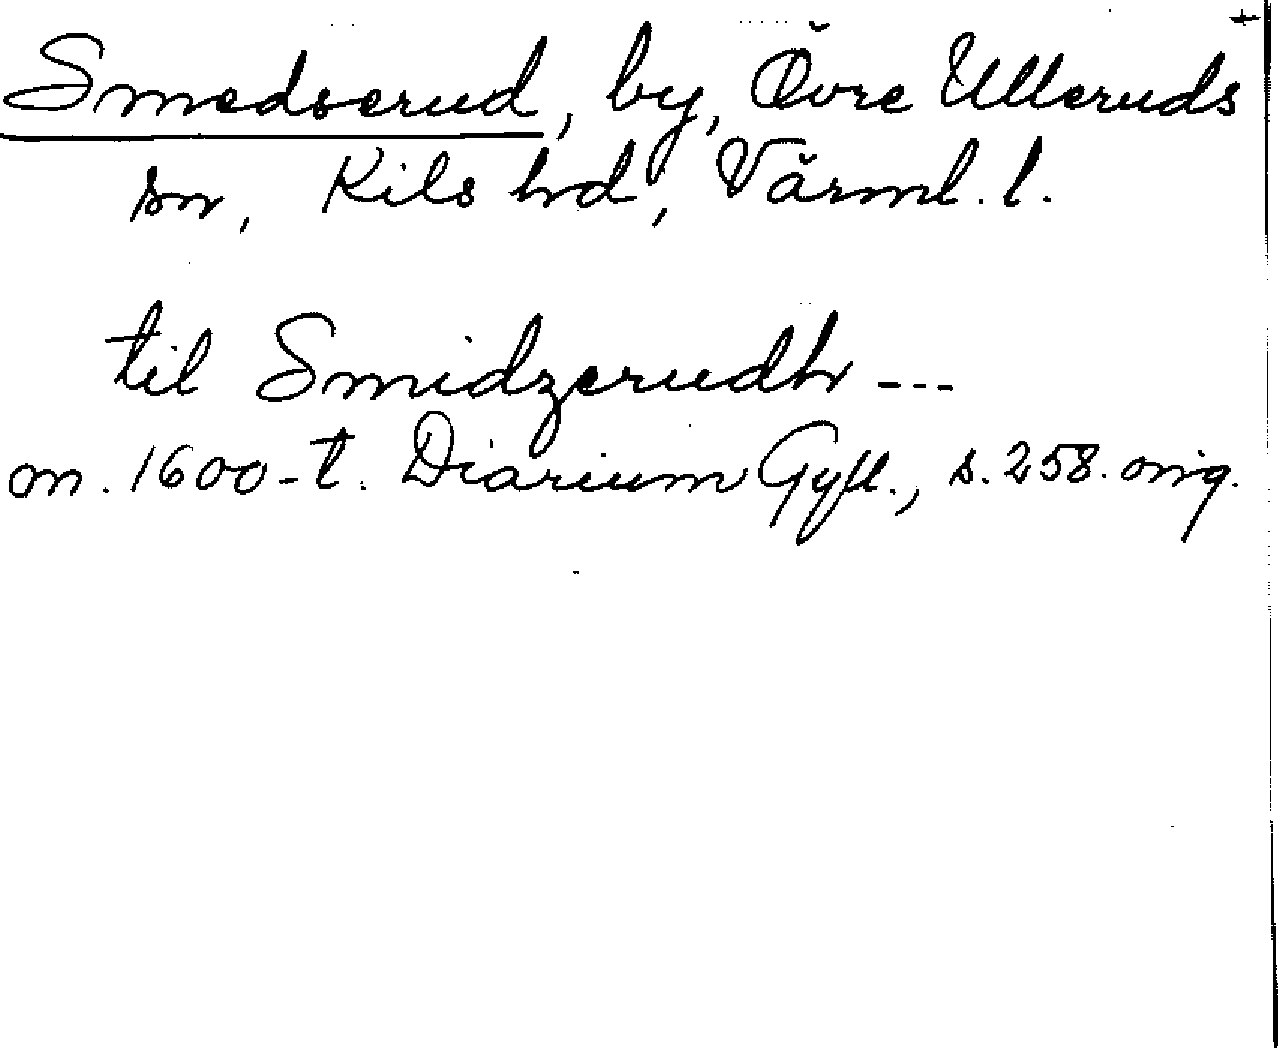 +
Smedserud, by, Övre Ulleruds
sn, Kils hd, Värml. l.
til Smidzerudh ---
m. 1600-t. Diarium Gyll., s. 258. orig.